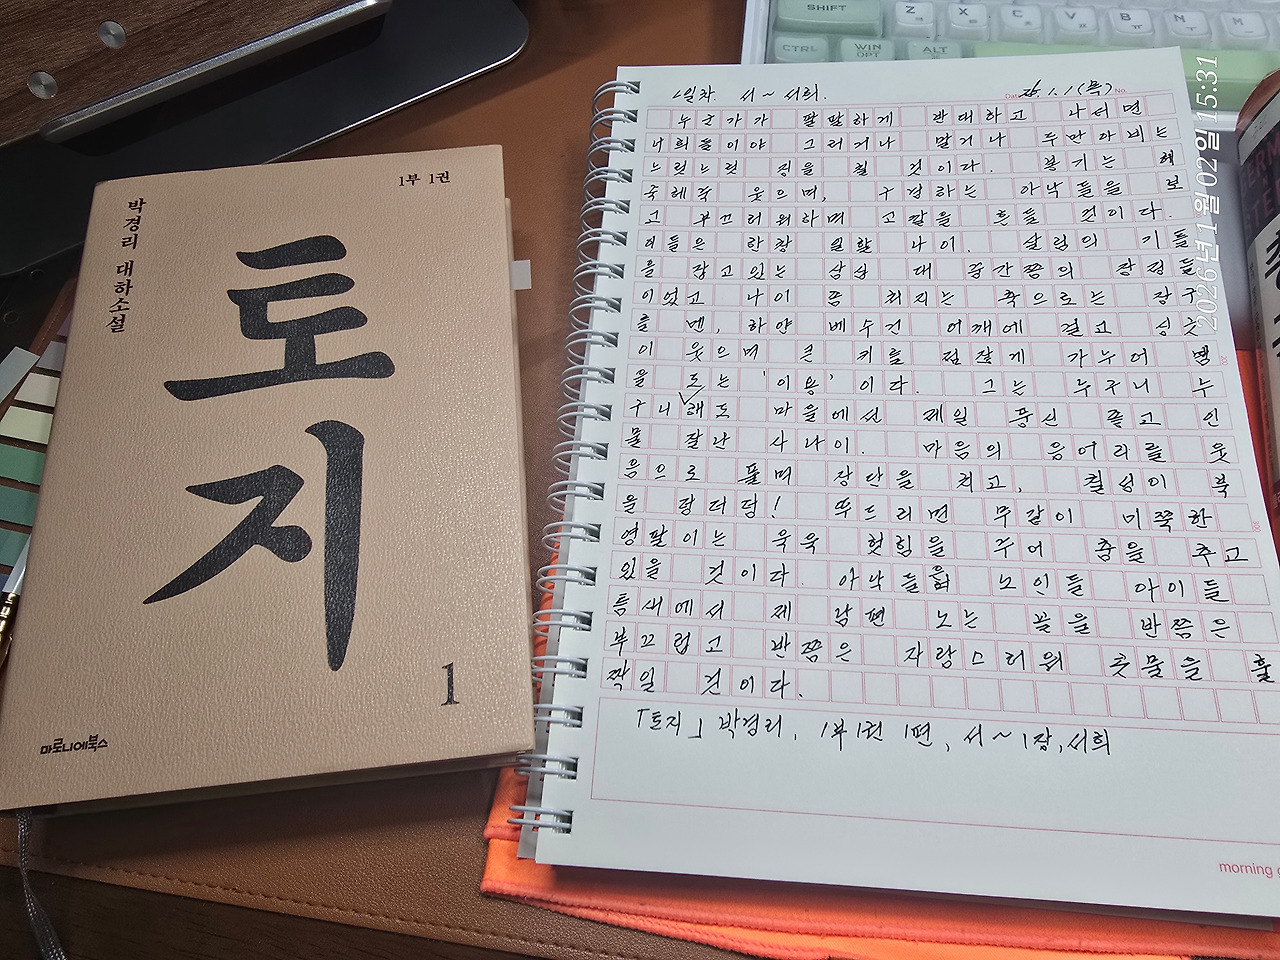 1부 1권
박경리 대하소설
토지
1
마로니에북스
SHIFT
Z X C V B N M
CTRL WIN OPT ALT
2026년 1월 02일 15:31
2일차. 서~서희.
Date 26. 1. 1 (목) No.
누군가가 팔팔하게 반대하고 나서면
너희들이야 그러거나 말거나 두만아비는
느릿느릿 징을 칠 것이다. 봉기는 헤
죽헤죽 웃으며, 구경하는 아낙들을 보
고 부끄러워하며 고깔을 흔들 것이다.
이들은 한창 일할 나이. 살림의 기틀
을 잡고있는 삼십 대 중간쯤의 장정들
이었고 나이 좀 처지는 축으로는 장구
를 멘, 하얀 베수건 어깨에 걸고 싱긋
이 웃으며 큰 키를 점잖게 가누어 맴
을 도는 '이용'이다. 그는 누구니 누
구니 해도 마을에선 제일 풍신 좋고 인
물 잘난 사나이. 마음의 응어리를 웃
음으로 풀며 장단을 치고, 칠성이 북
을 덩더덩! 뚜드리면 무같이 미쭉한
영팔이는 욱욱 헛힘을 주어 춤을 추고
있을 것이다. 아낙들은 노인들 아이들
틈새에서 제 남편 노는 꼴을 반쯤은
부끄럽고 반쯤은 자랑스러워 콧물을 훌
쩍일 것이다.
「토지」 박경리, 1부1권 1편, 서~1장, 서희
morning